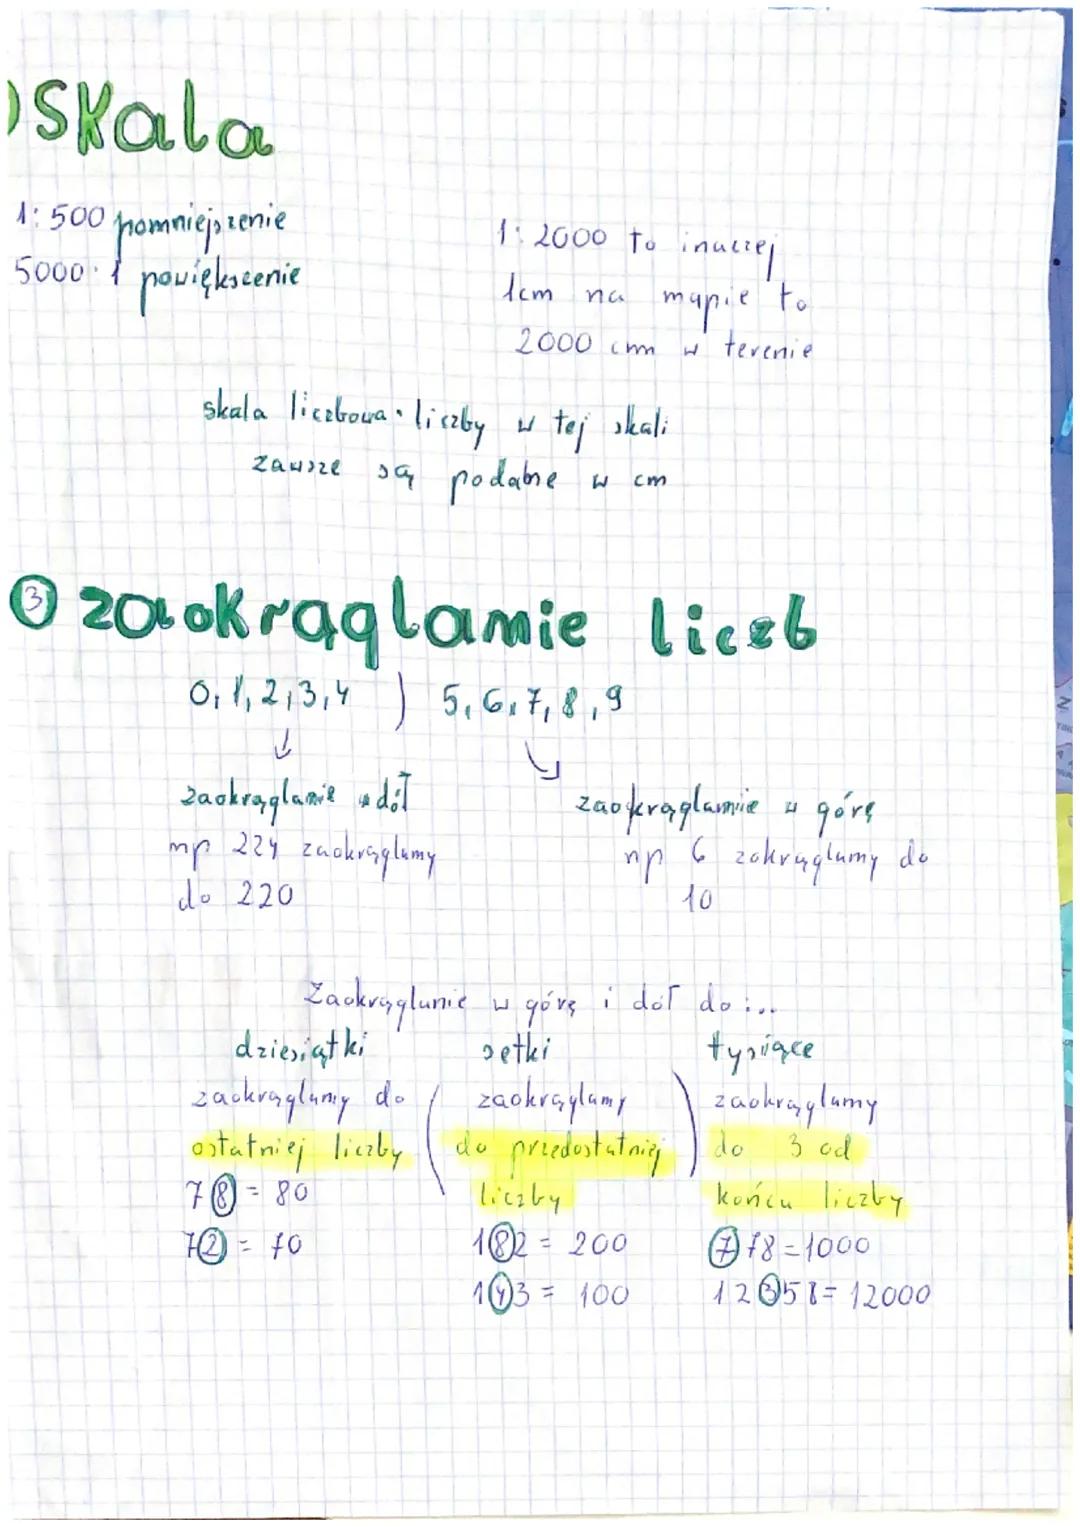 Skala
1:500 pomniejszenie
5000:1 powiększenie
1:2000 to inaczej
1cm na mapie to
2000 cm w terenie
skala liczbowa · liczby w tej skali
zawsze są podane w cm
③ zaokrąglanie liczb
0,1,2,3,4 ) 5,6,7,8,9
zaokrąglanie w dół
np 224 zaokrąglamy
do 220
zaokrąglanie w górę
np 6 zokrąglamy do
10
Zaokrąglanie w górę i dół do:..
dziesiątki
zaokrąglamy do
ostatniej liczby
78 = 80
72 = 70
setki
zaokrąglamy
do przedostatniej
liczby
182 = 200
143 = 100
tysiące
zaokrąglamy
do 3 od
końcu liczby
778=1000
12358=12000